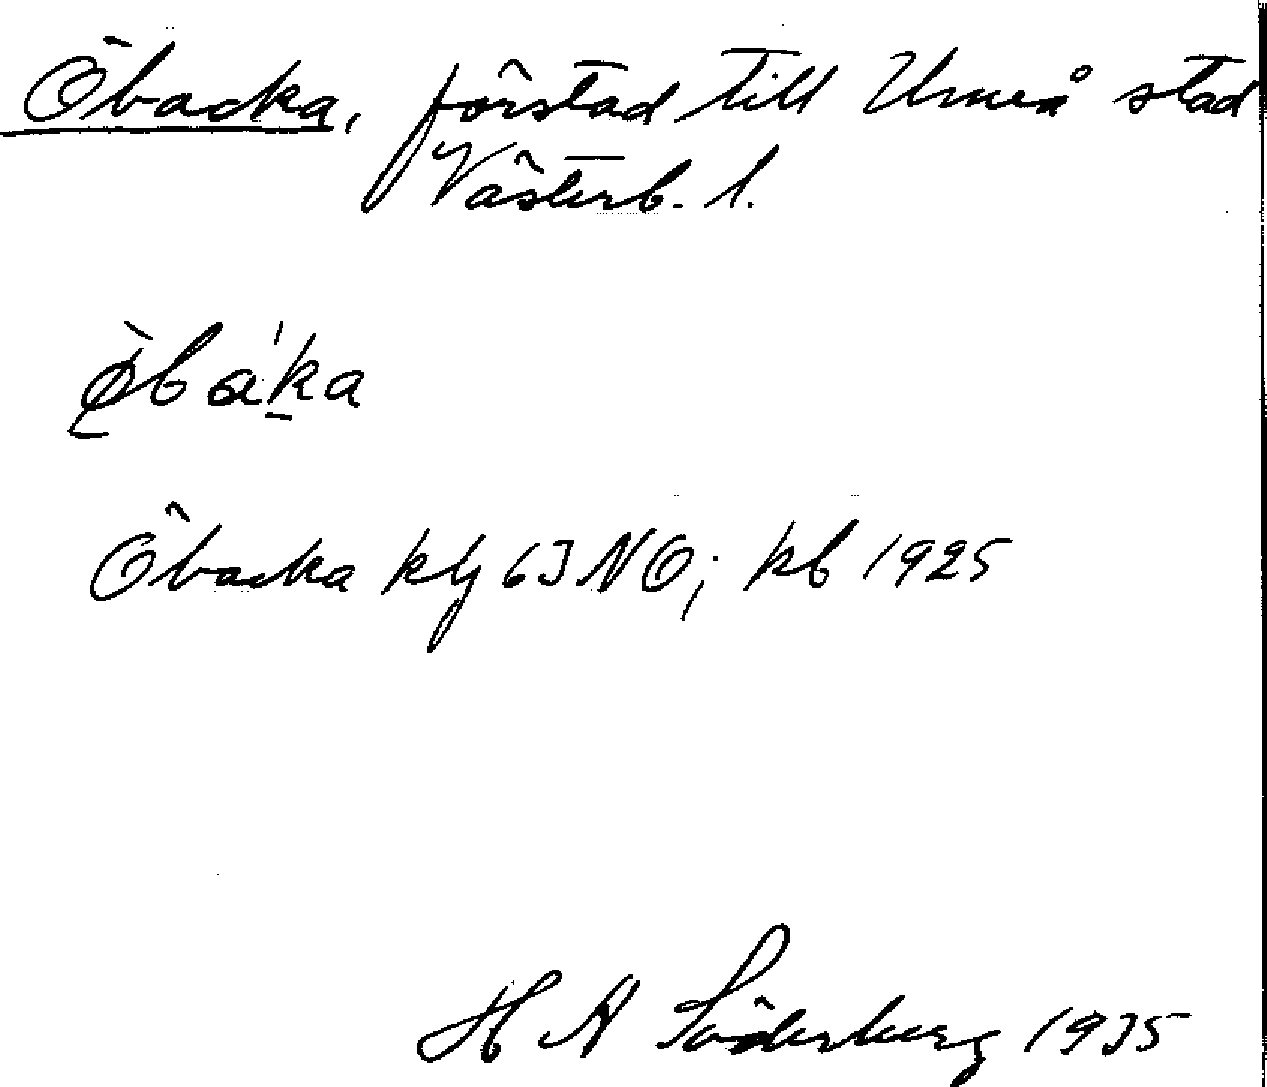 Öbacka, förstad till Umeå stad
Västerb. l.
Öbacka kbl 63 NO; kb 1925
H A Söderberg 1935